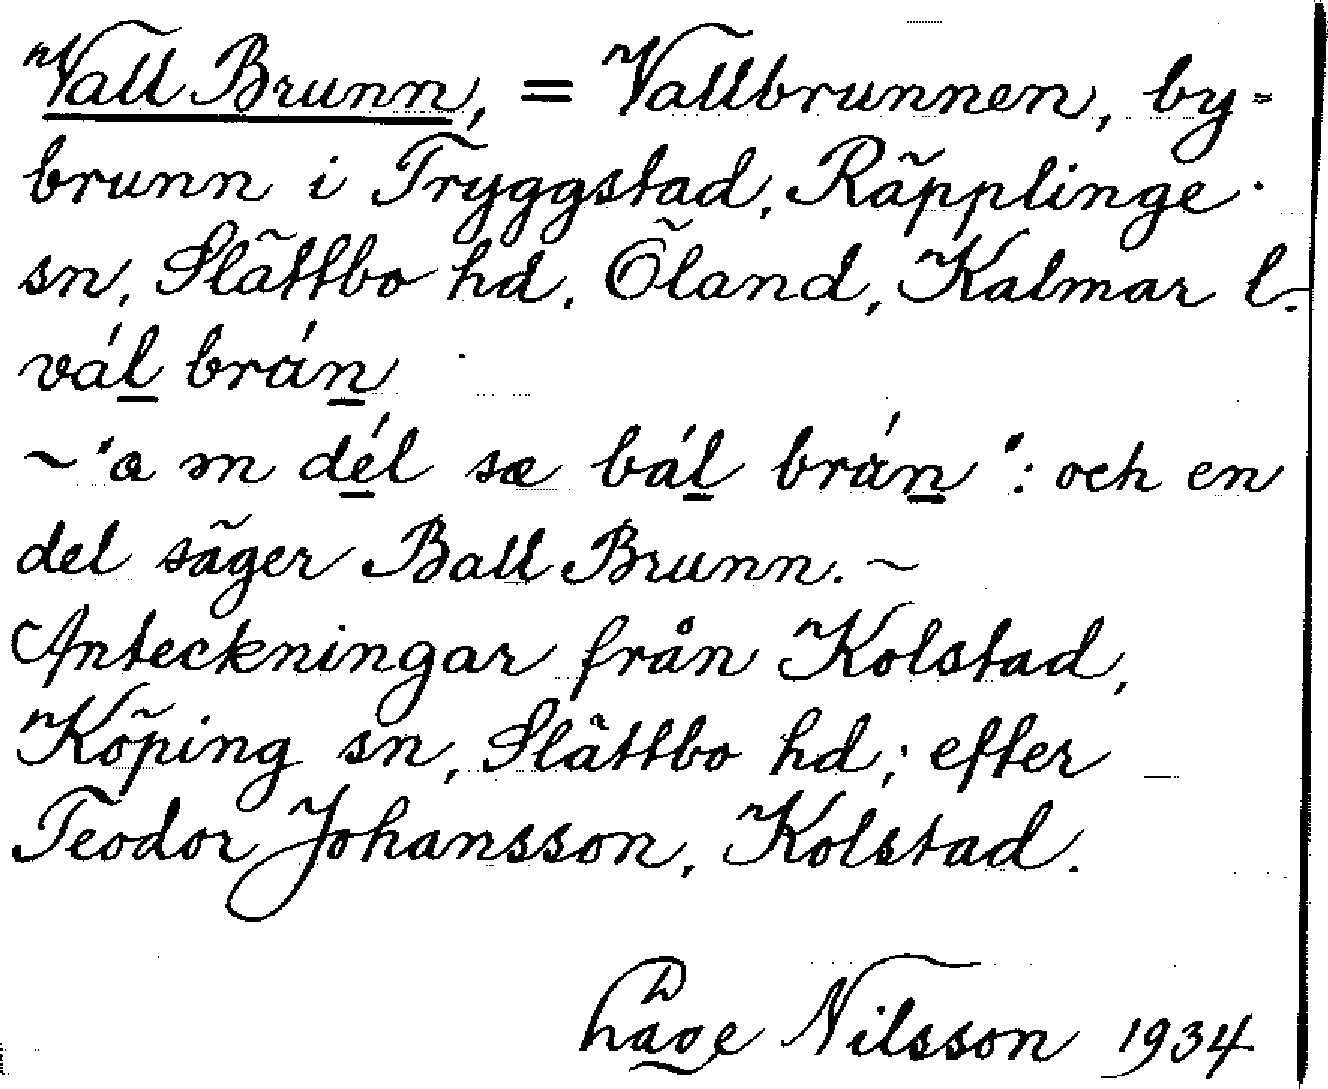 Vall Brunn, = Vallbrunnen, by-
brunn i Tryggstad, Räpplinge
sn, Slättbo hd, Öland, Kalmar l.
vál brán
~ "æ m dél sæ bál brán": och en
del säger Ball Brunn. ~
Anteckningar från Kolstad,
Köping sn, Slättbo hd; efter
Teodor Johansson, Kolstad.
Nilsson 1934